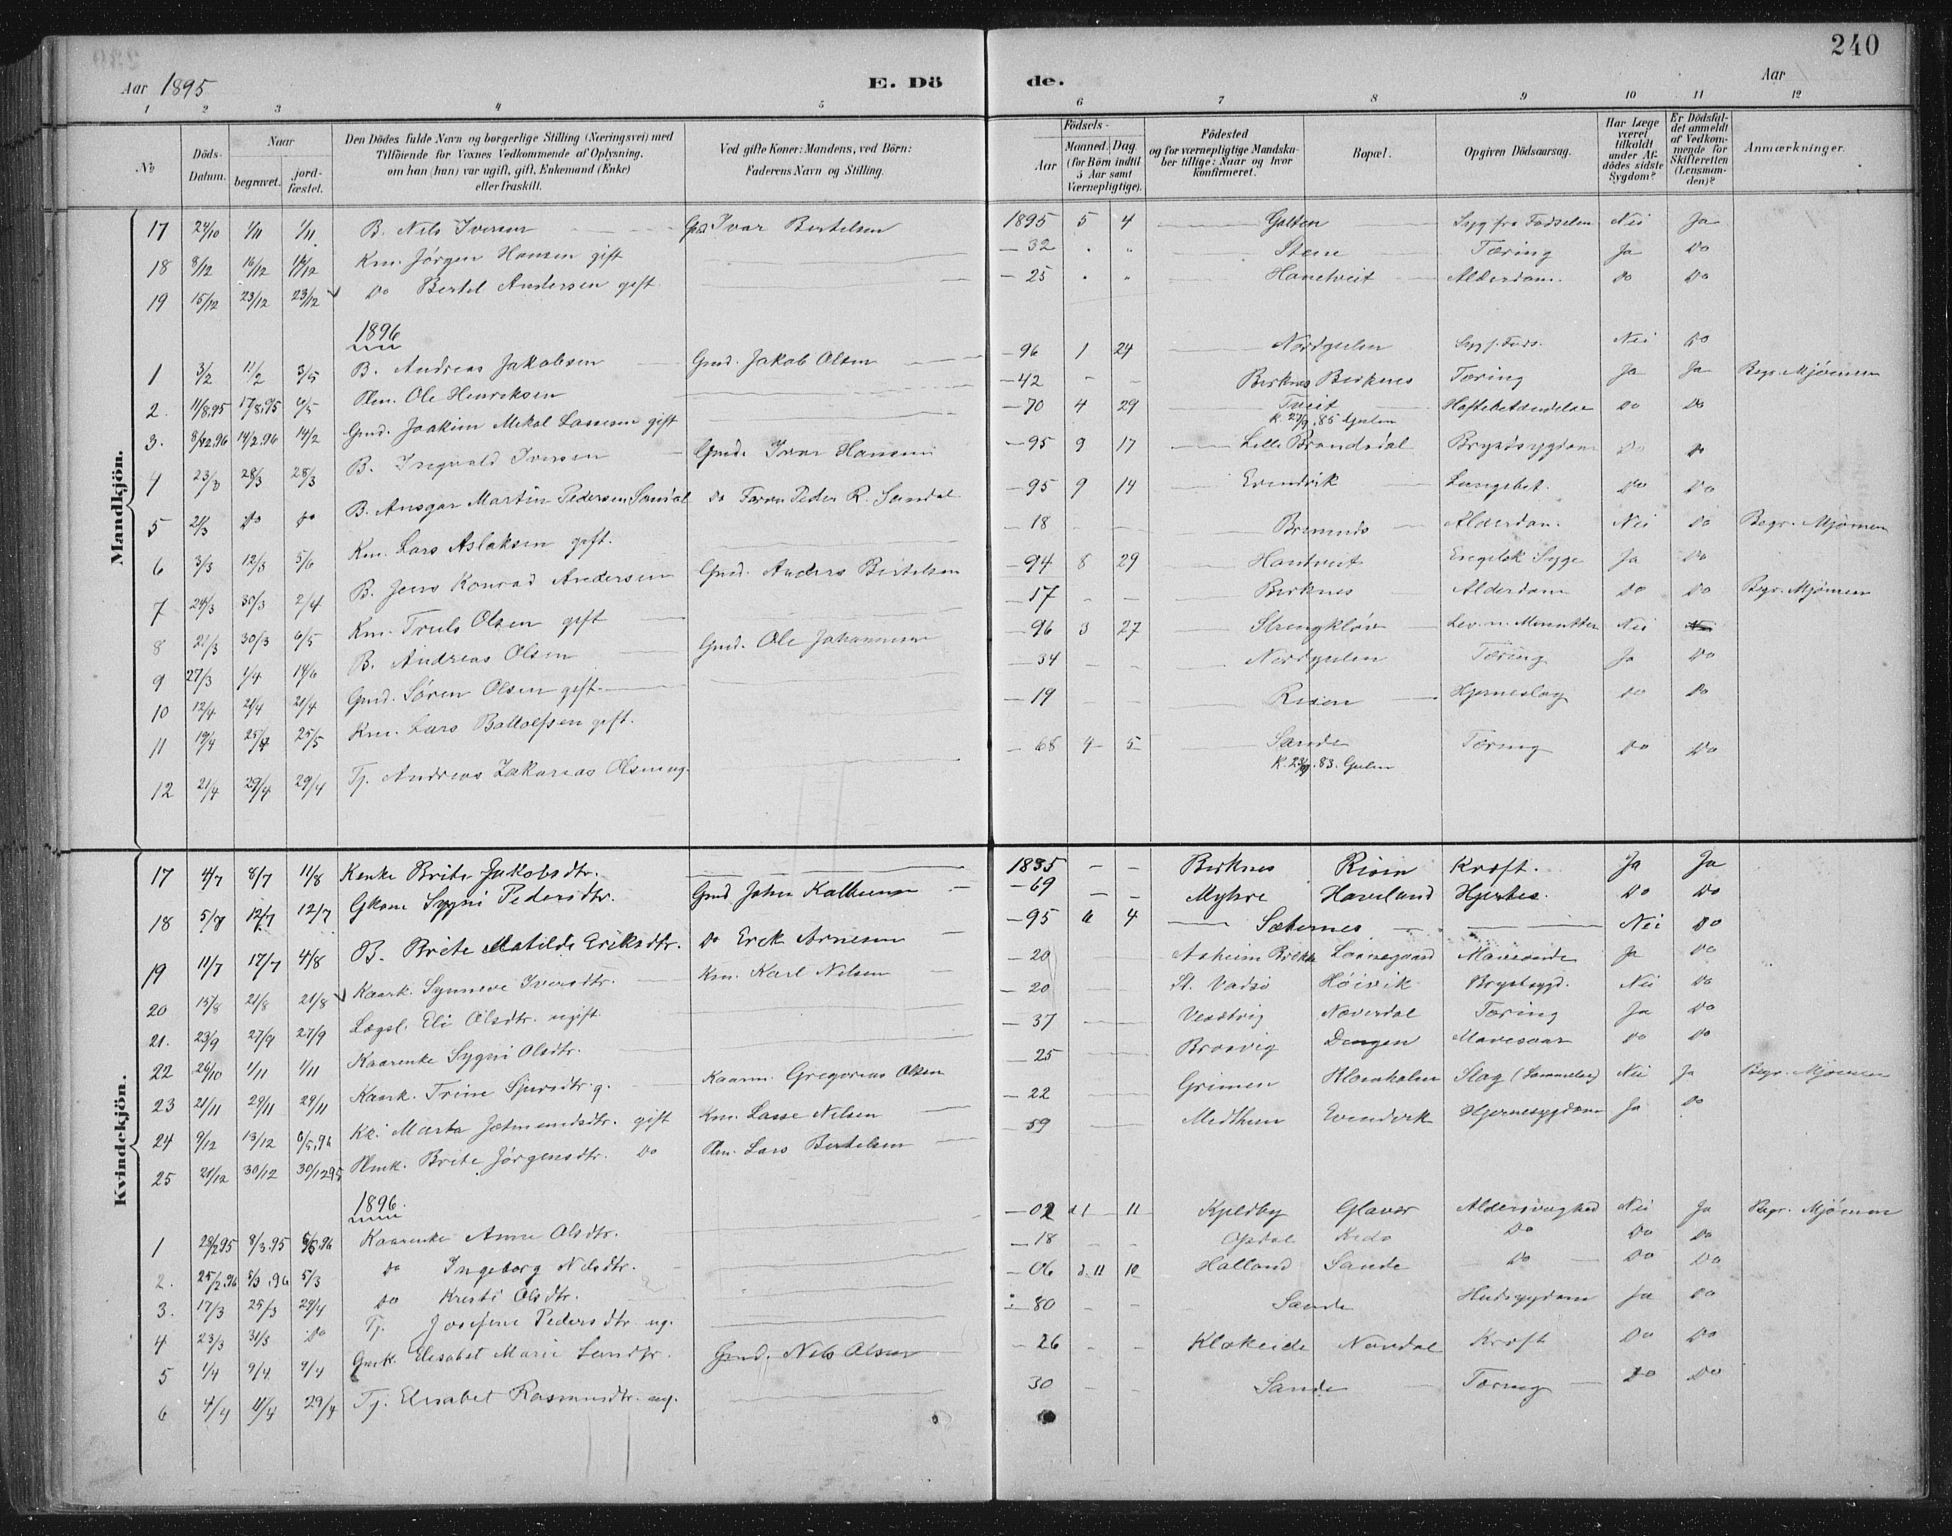 240
Aar 1895 E. Dö de. Aar
1 2 3 4 5 6 7 8 9 10 11 12
No
Döds-Datum.
Naar
begravet.
jord-fæstet.
Den Dödes fulde Navn og borgerlige Stilling (Næringsvei) med
Tilföiende for Voxnes Vedkommende af Oplysning,
om han (hun) var ugift, gift, Enkemand (Enke)
eller fraskilt.
Ved gifte Koner: Mandens, ved Börn:
Faderens Navn og Stilling.
Födsels-
Aar
Maaned. Dag
(for Börn indtil
5 Aar samt
Værnepligtige).
Födested
og for værnepligtige Mandska-
ber tillige: Naar og hvor
konfirmeret.
Bopæl.
Opgiven Dödsaarsag.
Har Læge
været
tilkaldt
under Af-
dödes sidste
Sygdom?
Er Dödsfal-
det anmeldt
af Vedkom-
mende for
Skifteretten
(Lensman-
den)?
Anmærkninger.
Mandkjön.
17 24/10 1/11 1/11 B. Nils Iversen Gmd. Ivar Bertelsen 1895 5 4 Galten Syg fra Fødselen Nei Ja
18 8/12 16/12 16/12 Km. Jørgen Hansen gift 32 " Stene Tæring Ja Do
19 15/12 23/12 23/12 Do Bertel Andersen gift 25 " Hanetveit Alderdom. Do Do
1896
1 3/2 11/2 3/5 B. Andreas Jakobsen Gmd. Jakob Olsen 96 1 24 Nordgulen Syg f. Føds. Nei Do
2. 11/8.95 17/8.95 6/5 Plm. Ole Henriksen 42 - - Birknes Birknes Tæring Ja Ja Begr. Mjømen
3. 8/2.96 14/2.96 14/2 Gmd. Joakim Mikal Lassesen gift 70 4 29 Tveit Hoftebetændelse Do Do
K. 27/9.85 Gulen
4 23/3 28/3 28/3 B. Ingvald Iversen Gmd. Ivar Hansen 95 9 17 Lille Brandsdal Brystsygdom Do Do
5 21/3 Do Do B. Ansgar Martin Pedersen Sandal Do Peder R. Sandal 95 9 14 Evendvik Lungebet. Do Do
6 3/3 12/3 5/6 Km. Lars Aslaksen gift. 18 - - Alderdom. Nei Do Begr. Mjømen
7 24/3 30/3 2/4 B. Jens Konrad Andersen Gmd. Anders Bertelsen 94 8 29 Hantveit Engelsk Syge Ja Do
8 21/3 30/3 6/5 Km. Truls Olsen gift 17 - - Birknes Alderdom Do Do Begr. Mjømen
9 27/3 1/4 14/6 B. Andreas Olsen Gmd. Ole Johannesen 96 3 27 Lev. n. Minutter Nei
10 12/4 21/4 21/4 Gmd. Søren Olsen gift 34 - - Nordgulen Tæring Ja Do
11 19/4 25/4 25/5 Km. Lars gift. 19 - - Risen Hjerneslag Do Do
12 21/4 29/4 29/4 Tj. Andreas Zakarias Olsen ug. 68 4 5 Sande Tæring Do Do
K. 23/9.83. Gulen
Kvindekjön.
17 4/7 8/7 11/8 Kenke Brite Jakobsdtr. 1835 - - Birknes Risin Kræft. Ja Ja
18 5/7 12/7 12/7 Gkone Sygni Pedersdtr. Gmd 69 - - Myhre Haveland Do Do
19 11/7 17/7 4/8 B. Brite Matilde Eriksdtr. Do Erik Arnesen 95 4 Sæternes Nei Do
20 15/8 21/8 21/8 Kaark. Synneve Iversdtr. Km. Karl Nilsen 20 - - Ja Do
21. 23/9 27/9 27/9 Lægsl. Eli Olsdtr. ugift 20 - - St. Vadsø Høivik Brystsygd. Nei Do
22 26/10 1/11 1/11 Kaarenke Sygni Olsdtr. 37 - - Næverdal Tæring Ja Do
23 21/11 29/11 29/11 Kaark. Trine g. Kaarm. Gregorius Olsen 25 - - Brosvig Dingen Mavesaar Do Do
24 9/12 13/12 6/5.96 Marta gift Km. Lasse Nilsen 22 - - Grimen Slag Nei Ja Begr. Mjømen
25 21/12 30/12 30/12 95 Plmk. Brite Jørgensdtr. Do Plm. Lars Bertelsen 59 - - Midthun Evendvik Hjernesygdom Ja Do
1896
1 8/3.95 Kaarenke Anne Olsdtr. 02 11 Glavær Alderssvaghed Nei Ja Begr. Mjømen
2. 25/2.96 5/3.96 5/3 Do Ingeborg Nilsdtr. 18 - - Opdal Do Do Do
3. 17/3 25/3 29/4 Do Kristi Olsdtr. 06 Halland Sande Do Do Do
4 23/3 31/3 Do Tj. Josefine Pedersdtr ug. 80 - - Sande Hudsygdom Ja Do
5 1/4 9/4 9/4 Gmk. Elisabet Marie Gmd. Nils Olsen 26 - - Klakeide Nordal Kræft Do Do
6 4/4 11/4 29/4 Tj. Elisabet Rasmusdtr. ug. 30 - - Sande Tæring Do Do